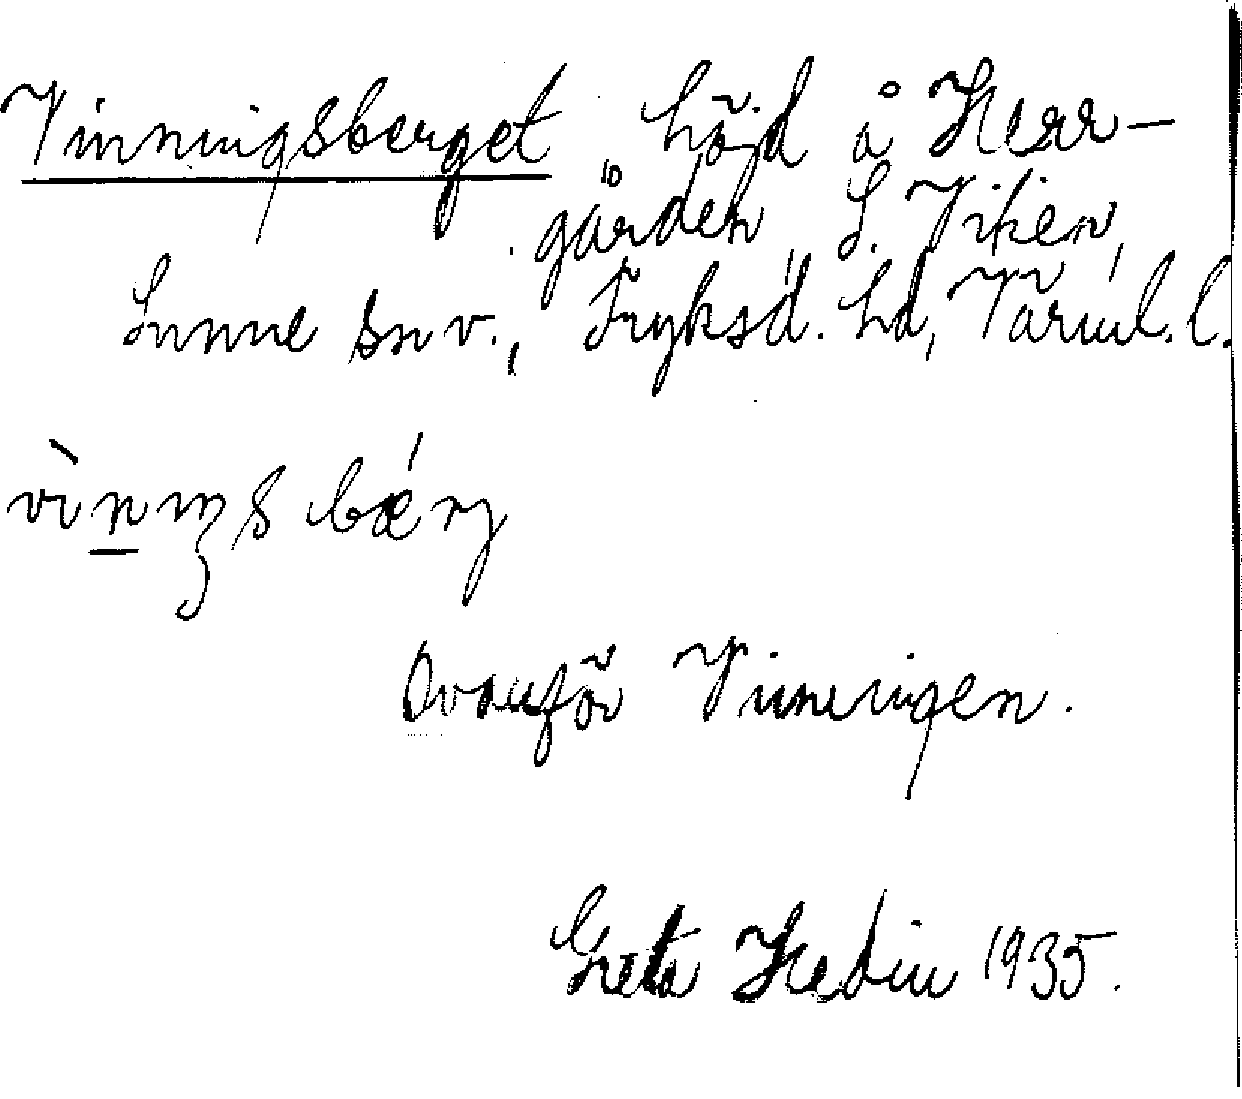 Vinningsberget, höjd å Herr-
gården, S. Viken,
Sunne sn v., Fryksd. hd, Värml. l.
vìnıŋs bǽrj
Ovanför Vinningen.
Greta Hedin 1935.